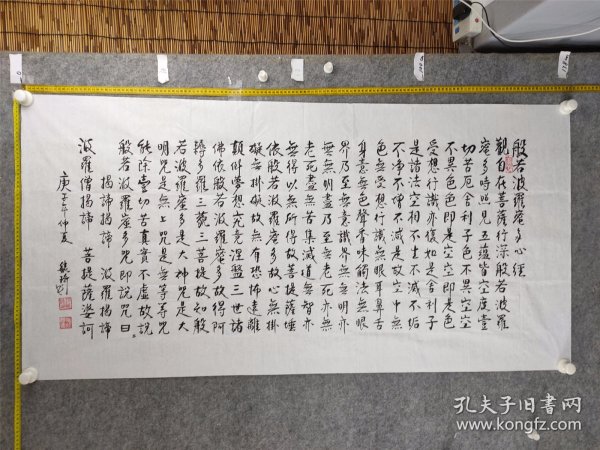 般若波羅蜜多心經
觀自在菩薩行深般若波羅
蜜多時照見五蘊皆空度壹
切苦厄舍利子色不異空空
不異色色即是空空即是色
受想行識亦復如是舍利子
是諸法空相不生不滅不垢
不淨不增不減是故空中無
色無受想行識無眼耳鼻舌
身意無色聲香味觸法無眼
界乃至無意識界無無明亦
無無明盡乃至無老死亦無
老死盡無苦集滅道無智亦
無得以無所得故菩提薩埵
依般若波羅蜜多故心無掛
礙無掛礙故無有恐怖遠離
顛倒夢想究竟涅盤三世諸
佛依般若波羅蜜多故得阿
耨多羅三藐三菩提故知般
若波羅蜜多是大神咒是大
明咒是無上咒是無等等咒
能除壹切苦真實不虛故說
般若波羅蜜多咒即說咒曰
揭諦揭諦 波羅揭諦
波羅僧揭諦 菩提薩婆訶
庚子年仲夏
孔夫子旧书网
www.kongfz.com